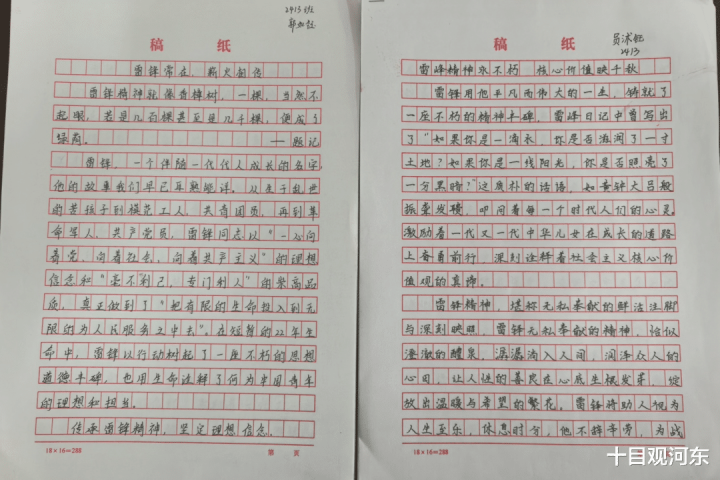 2413班
稿 纸
雷锋常在,薪火相传
雷锋精神就像香樟树,一棵,当然不
起眼,若是几百棵甚至是几千棵,便成了
绿荫。 ——题记
雷锋,一个伴随一代代人成长的名字,
他的故事我们早已耳熟能详。从生于乱世
的苦孩子到模范工人,共青团员,再到革
命军人,共产党员,雷锋同志以“一心向
着党,向着社会,向着共产主义”的理想
信念和“毫不利己,专门利人”的崇高品
质,真正做到了“把有限的生命投入到无
限的为人民服务之中去”。在短暂的22年生
命中,雷锋以行动树起了一座不朽的思想
道德丰碑,也用生命诠释了何为中国青年
的理想和担当。
传承雷锋精神,坚定理想信念。
18×16=288 第 页
2413
稿 纸
雷锋精神永不朽 核心价值映千秋
雷锋用他平凡而伟大的一生,铸就了
一座不朽的精神丰碑。雷锋日记中曾写出
了“如果你是一滴水,你是否滋润了一寸
土地?如果你是一线阳光,你是否照亮了
一分黑暗?”这质朴的话语,如黄钟大吕般
振聋发聩,叩问着每一个时代人们的心灵。
激励着一代又一代中华儿女在成长的道路
上奋勇前行,深刻诠释着社会主义核心价
值观的真谛。
雷锋精神,堪称无私奉献的鲜活注脚
与深刻映照。雷锋无私奉献的精神,恰似
澄澈的醴泉,潺潺淌入人间,润泽众人的
心田,让人性的善良在心底生根发芽,绽
放出温暖与希望的繁花。雷锋将助人视为
人生至乐,休息时分,他不辞辛劳,为战
18×16=288
十目观河东